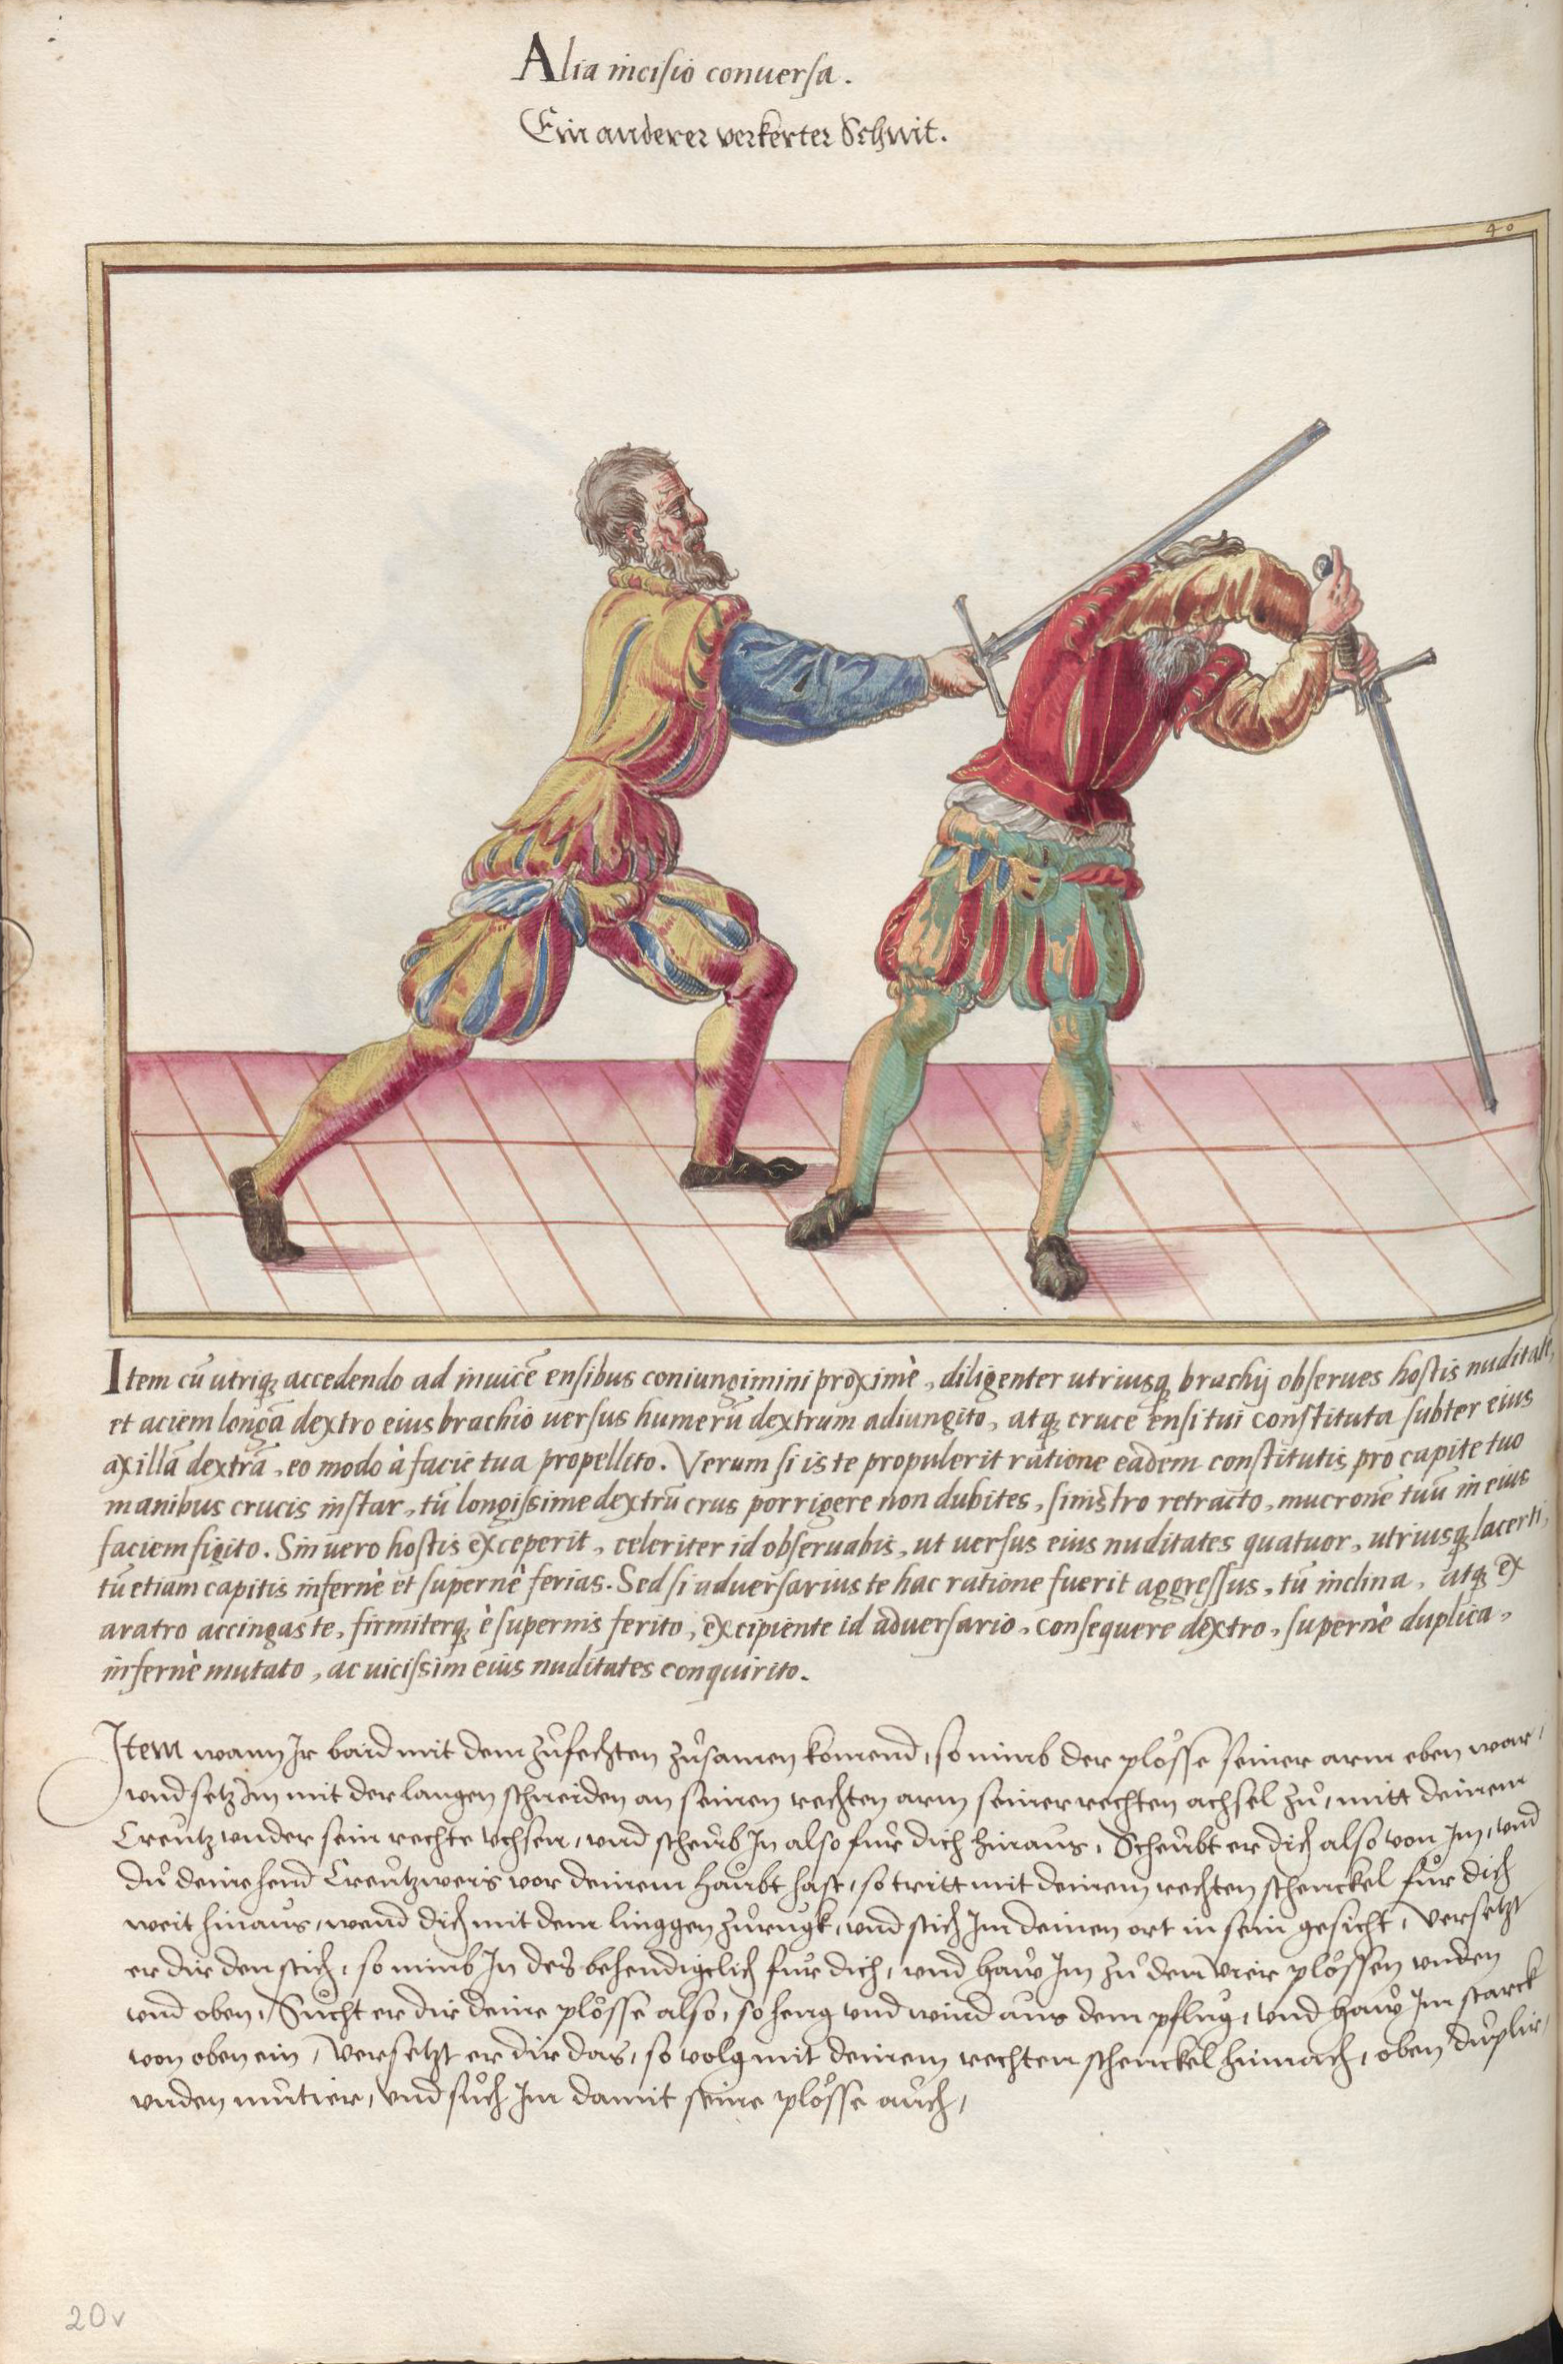 Alia incisio conuersa.
Ein anderer verkerter Schnit.
40
Item cū utriq; accedendo ad inuicē ensibus coniungimini proximè, diligenter utriusq; brachij obserues hostis nuditatē,
et aciem longā dextro eius brachio uersus humerū dextrum adiungito, atq; cruce ensi tui constituta subter eius
axillā dextrā, eo modo à facie tua propellito. Verum si is te propulerit ratione eadem constitutis pro capite tuo
manibus crucis instar, tū longissime dextrū crus porrigere non dubites, sinistro retracto, mucronē tuū in eius
faciem figito. Sin uero hostis exceperit, celeriter id obseruabis, ut uersus eius nuditates quatuor, utriusq; lacerti,
tū etiam capitis infernè et supernè ferias. Sed si aduersarius te hac ratione fuerit aggressus, tū inclina, atq; ex
aratro accingas te, firmiterq; è supernis ferito, excipiente id aduersario, consequere dextro, supernè duplica,
infernè mutato, ac uicissim eius nuditates conquirito.
Item wann Ir baid mit dem zůfechten zůsamen komend, so nimb der plösse seiner arm eben war,
vnd setz Im mit der langen schneiden an seinen rechten arm seiner rechten achsel zů, mitt deinem
Creutz vnder sein rechte vchsen, vnd scheub In also für dich hinaus, Scheubt er dich also von Im, vnd
du deine hend Creutzweis vor deinem haubt hast, so tritt mit deinem rechten schenckel für dich
weit hinaus, wend dich mit dem linggen zůrugk, vnd stich Im deinen ort in sein gesicht, versetzt
er dir den stich, so nimb In des behendigclich für dich, vnd haw Im zů den vier plössen vnden
vnd oben, Sucht er dir deine plösse also, so heng vnd wind aus dem pflug, vnd haw Im starck
von oben ein, versetzt er dir das, so volg mit deinem rechten schenckel hinnach, oben duplir,
vnden mutier, vnd such Im damit seine plösse auch,
20v